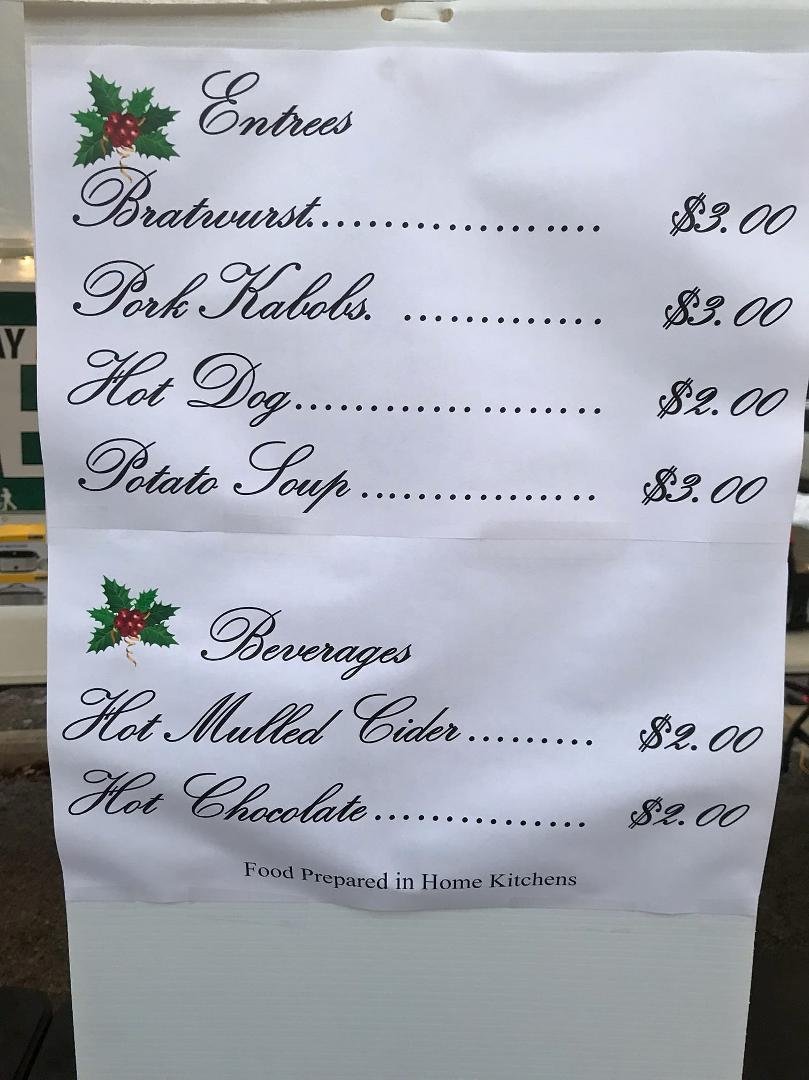 Entrees
Bratwurst..................... $3.00
Pork Kabobs. ............. $3.00
Hot Dog...................... $2.00
Potato Soup ................ $3.00
Beverages
Hot Mulled Cider.......... $2.00
Hot Chocolate............... $2.00
Food Prepared in Home Kitchens